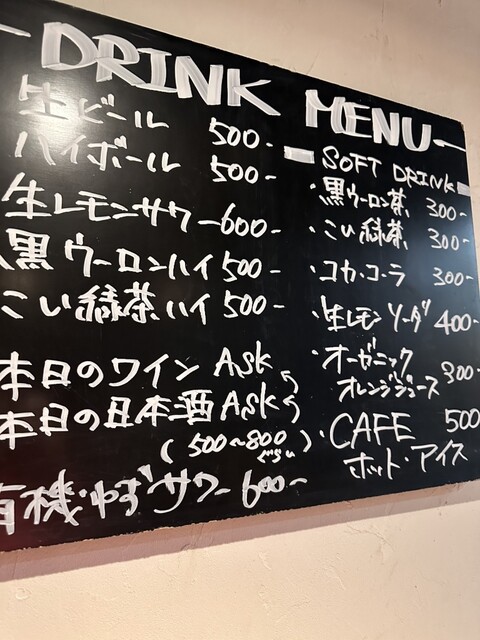 DRINK MENU
生ビール 500-
ハイボール 500-
生レモンサワー600-
黒ウーロンハイ 500-
こい緑茶ハイ 500-
本日のワイン Ask
本日の日本酒 Ask
(500~800ぐらい)
有機・ゆずサワー 600-
SOFT DRINK
・黒ウーロン茶 300-
・こい緑茶 300-
・コカ・コーラ 300-
・生レモンソーダ 400-
・オーガニック
オレンジジュース 300-
・CAFE 500
ホット・アイス